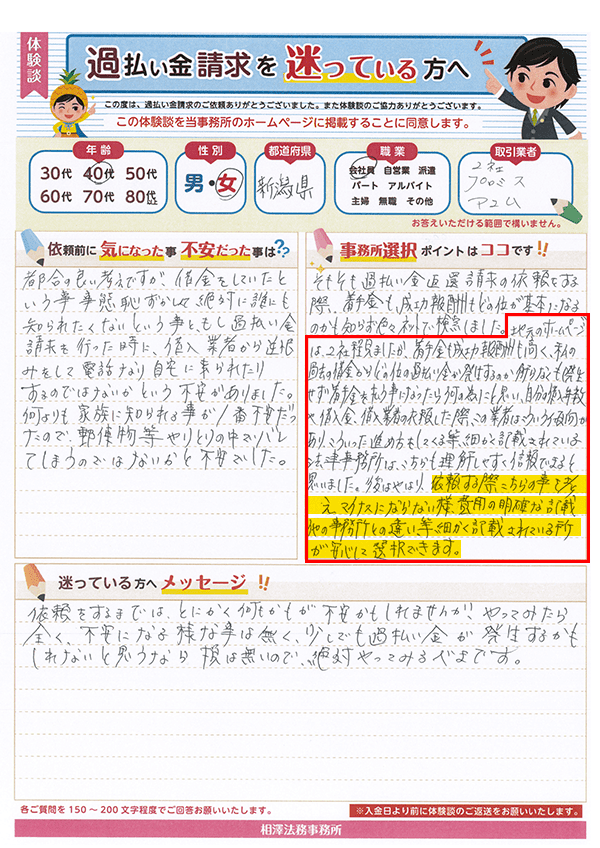 体験談
過払い金請求を迷っている方へ
この度は、過払い金請求のご依頼ありがとうございました。また体験談のご協力ありがとうございます。
この体験談を当事務所のホームページに掲載することに同意します。
年齢
30代 40代 50代
60代 70代 80代以上
性別
男・女
都道府県
新潟県
職業
会社員 自営業 派遣
パート アルバイト
主婦 無職 その他
取引業者
2社
プロミス
アコム
お答えいただける範囲で構いません。
依頼前に気になった事 不安だった事は??
都合の良い考えですが、借金をしていたと
いう事事態恥ずかしくて絶対に誰にも
知られたくないという事と、もし過払い金
請求を行った時に、借入業者から逆恨
みをして電話なり自宅に来られたり
するのではないかという不安がありました。
何よりも家族に知られる事が1番不安だっ
たので、郵便物等やりとりの中でバレ
てしまうのではないかと不安でした。
事務所選択ポイントはココです!!
そもそも過払い金返還請求の依頼をする
際、着手金も、成功報酬もどの位が基本になる
のかも知らず色々ネットで検索しました。地元のホームページ
は、2社程見ましたが、着手金も成功報酬も高く、私の
過去の借金からどの位の過払い金が発生するのか
せず着手金を払う事になったら何の為にと思い、自分の借入年数
や借入金、借入業者の依頼した際、この業者はこういう傾向が
あり、こういった進め方をしてくる等、細かく記載されている
法律事務所は、こちらも理解しやすく信頼できると
思いました。後はやはり、依頼する際こちらの事も考
え、マイナスにならない様、費用の明確な記載
他の事務所との違い等、細かく記載されている所
が安心して選択できます。
迷っている方へメッセージ!!
依頼をするまでは、とにかく何もかもが不安かもしれませんが、やってみたら
全く、不安になる様な事は無く、少しでも過払い金が発生するかも
しれないと思うなら損は無いので、絶対やってみるべきです。
各ご質問を150〜200文字程度でご回答お願いいたします。
※入金日より前に体験談のご返送をお願いいたします。
相澤法務事務所